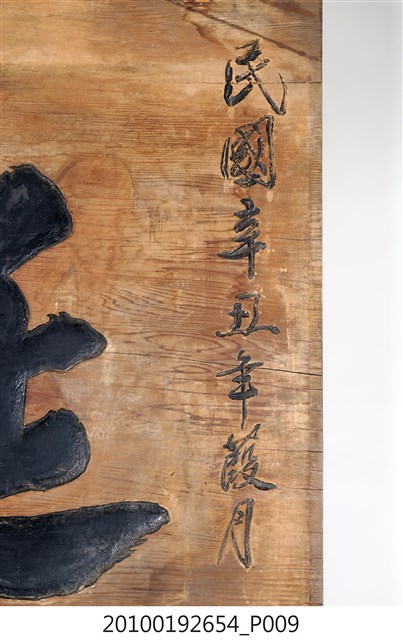 民國辛丑年葭月
20100192654_P009